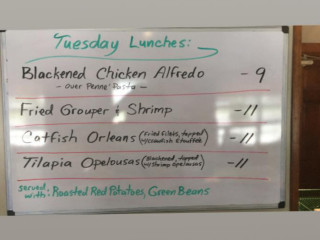 Tuesday Lunches:
Blackened Chicken Alfredo - 9
- over Penne Pasta -
Fried Grouper & Shrimp - 11
Catfish Orleans (Fried filets, topped w/ Crawfish Etouffee) - 11
Tilapia Opelousas (Blackened, topped w/ Shrimp Opelousas) - 11
served with: Roasted Red Potatoes, Green Beans